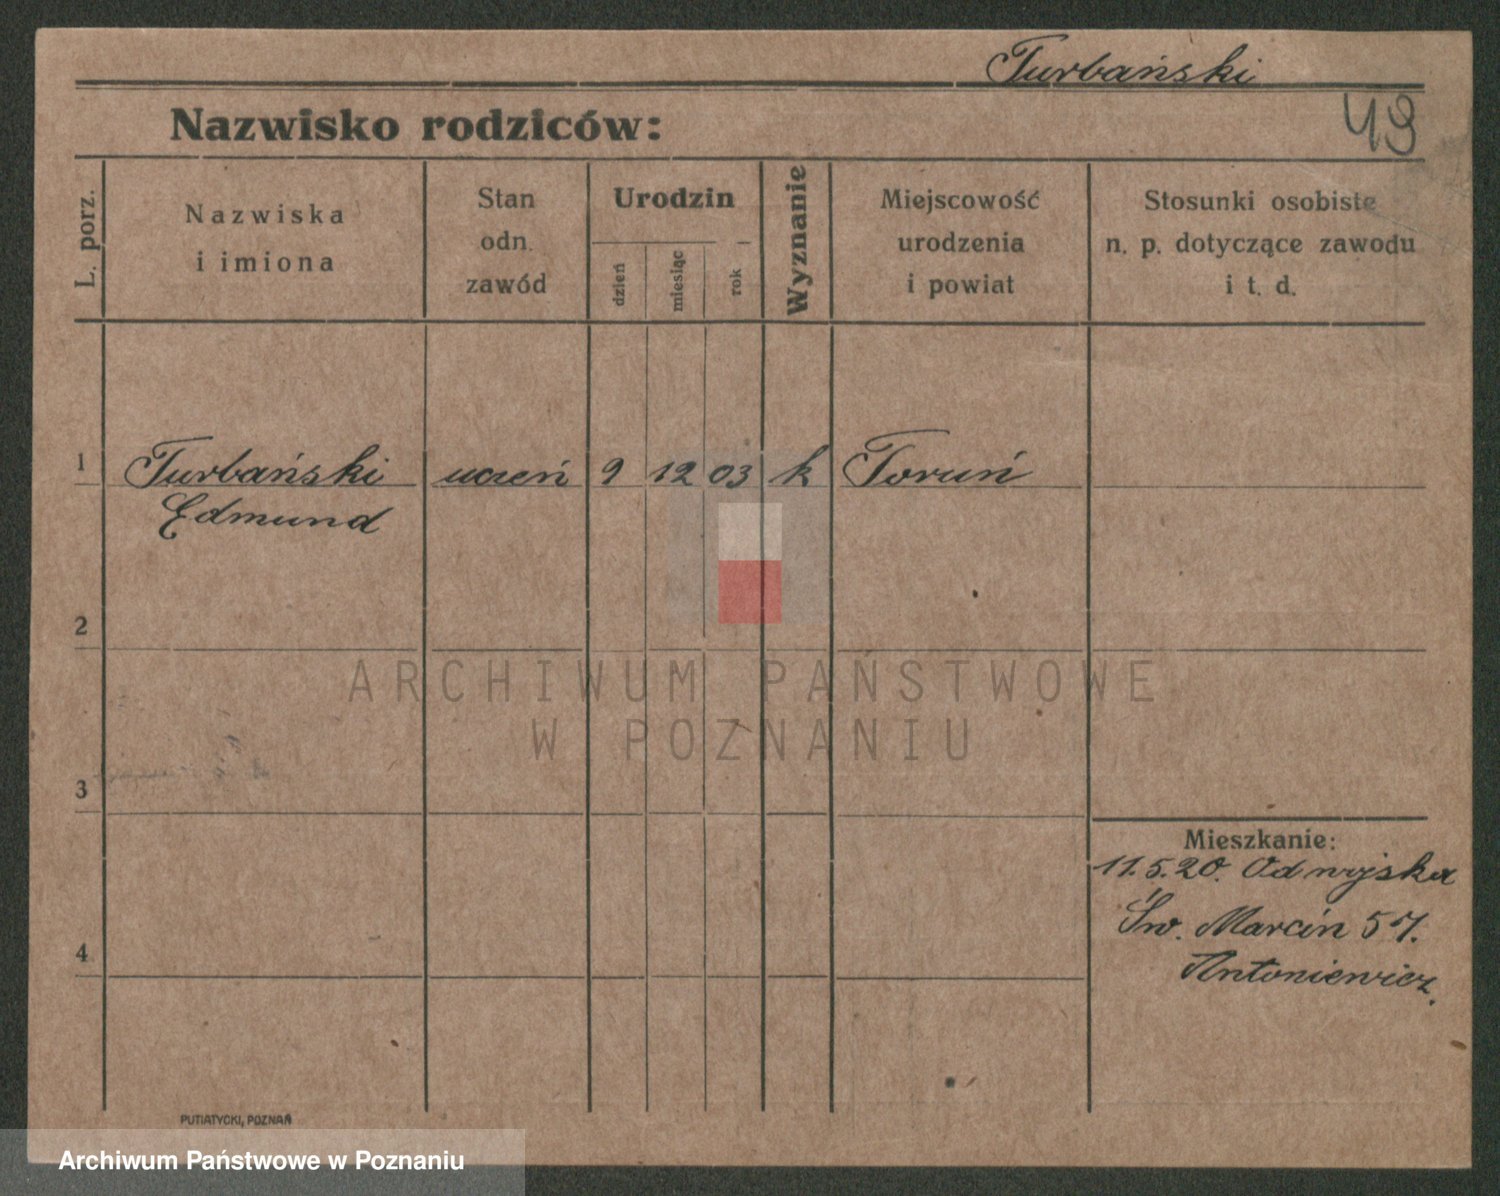 Turbański
49
Nazwisko rodziców:
L. porz.
Nazwiska
i imiona
Stan
odn.
zawód
Urodzin
dzień
miesiąc
rok
Wyznanie
Miejscowość
urodzenia
i powiat
Stosunki osobiste
n. p. dotyczące zawodu
i t. d.
1 Turbański uczeń 9 12 03 k Toruń
Edmund
2
ARCHIWUM PAŃSTWOWE
W POZNANIU
3
Mieszkanie:
11.5.20. Od wojska
Św. Marcin 57.
Antoniewicz.
4
PUTIATYCKI, POZNAŃ
Archiwum Państwowe w Poznaniu